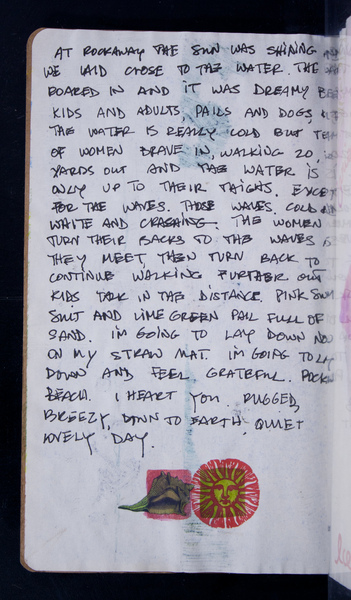 AT ROCKAWAY THE SUN WAS SHINING
WE LAID CLOSE TO THE WATER. THE
ROARED IN AND IT WAS DREAMY
KIDS AND ADULTS, PAILS AND DOGS,
THE WATER IS REALLY COLD BUT
OF WOMEN BRAVE IN, WALKING 20,
YARDS OUT AND THE WATER IS
ONLY UP TO THEIR THIGHS. EXCEPT
FOR THE WAVES. THOSE WAVES. COLD AND
WHITE AND CRASHING. THE WOMEN
TURN THEIR BACKS TO THE WAVES
THEY MEET, THEN TURN BACK TO
CONTINUE WALKING FURTHER OUT
KIDS TALK IN THE DISTANCE. PINK SWIM
SUIT AND LIME GREEN PAIL FULL OF
SAND. I'M GOING TO LAY DOWN NOW
ON MY STRAW MAT. I'M GOING TO LAY
DOWN AND FEEL GRATEFUL.
BEACH. I HEART YOU. RUGGED,
BREEZY, DOWN TO EARTH, QUIET
LOVELY DAY.